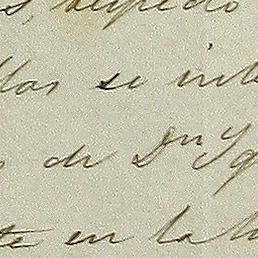 respecto
llas se inte
de Dn Yg
te en la